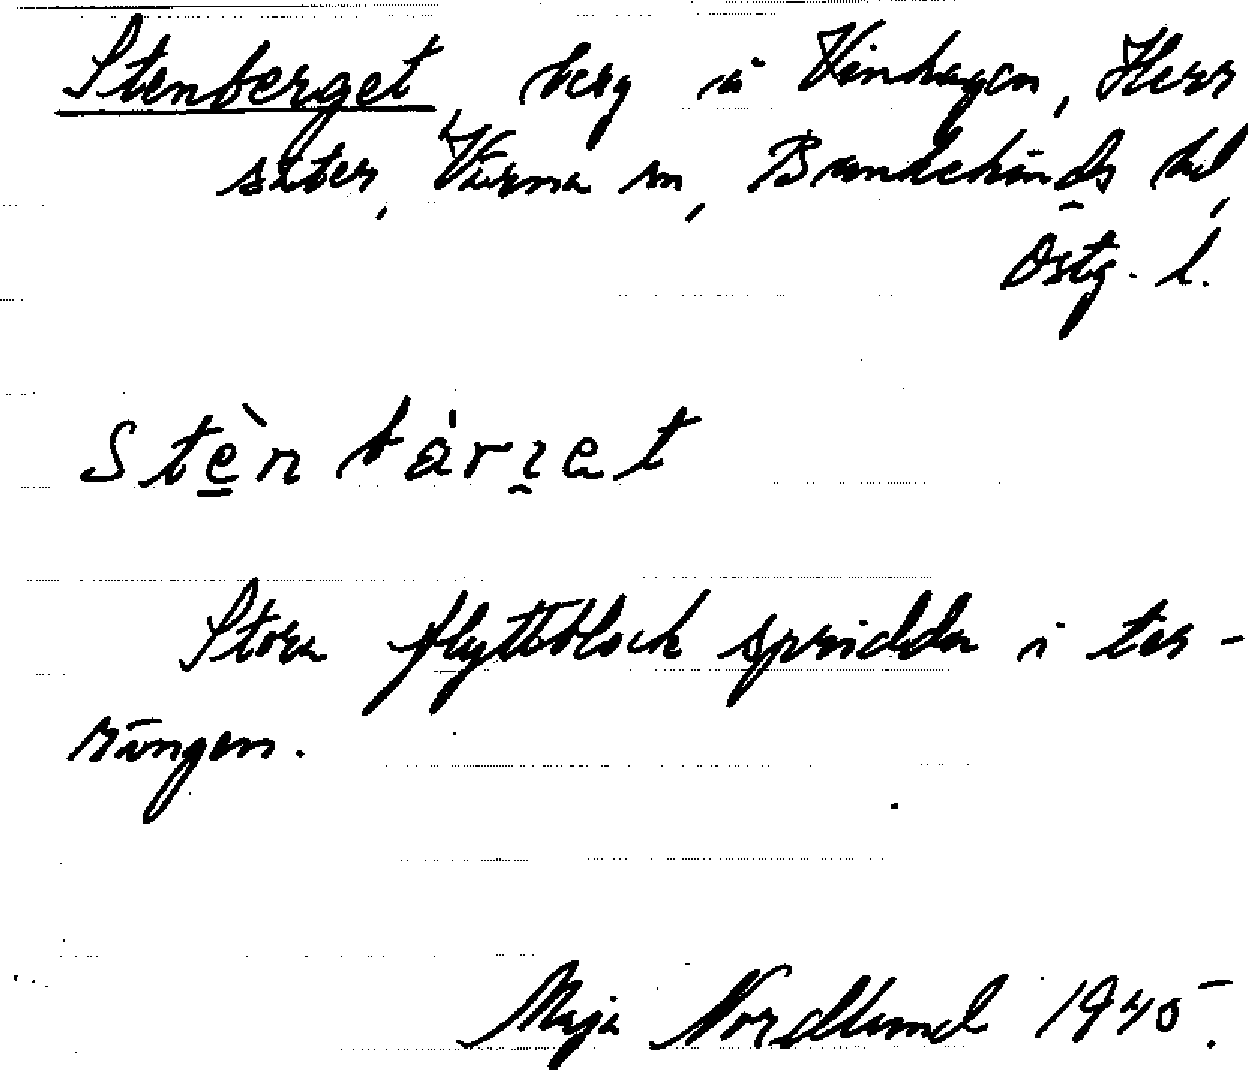 Stenberget, berg i Vinhagen, Herr
säter, Värna sn, Bankekinds hd,
Östg. l.
Stèn bárɿet
Stora flyttblock spridda i ter-
rängen.
Maja Nordlund 1945.